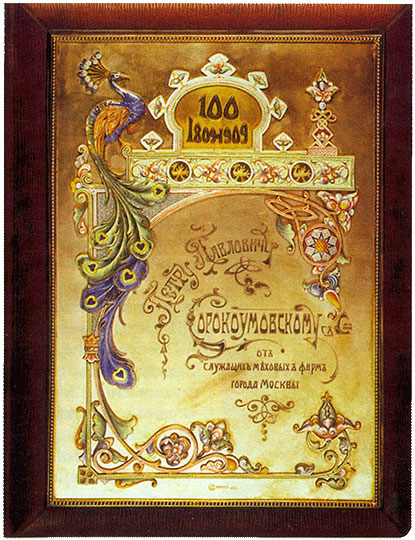 100
1809-1909
Петру Павловичу
Сорокоумовскому съ С
отъ
служащихъ мѣховыхъ фирмъ
города Москвы